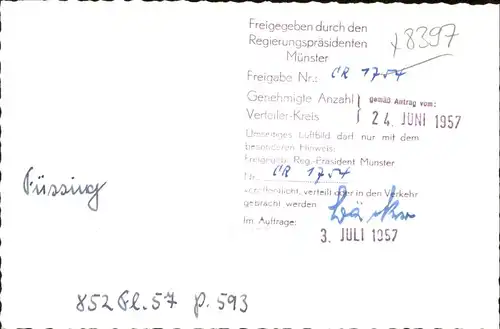 Freigegeben durch den
Regierungspräsidenten
Münster
x8397
Freigabe Nr.: CR 1754
Genehmigte Anzahl
Verteiler-Kreis
gemäß Antrag vom:
24. JUNI 1957
Umseitiges Luftbild darf nur mit dem
besonderen Hinweis:
Freigegeb. Reg.-Präsident Münster
Nr. CR 1754
veröffentlicht, verteilt oder in den Verkehr
gebracht werden
Im Auftrage:
3. JULI 1957
Füssing
852 Fl. 57 p. 593